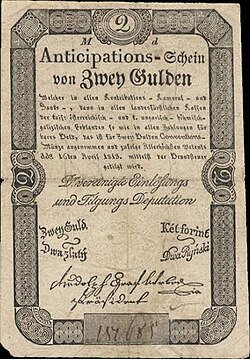 2
M d
Anticipations-Schein
von Zwey Gulden
Welcher in allen Kontributions- Kameral- und
Banko-, dann in allen landesfürstlichen Kassen
der kais. österreichisch- und k. ungarisch- böhmisch-
galizischen Erblanden so wie in allen Zahlungen für
baares Geld, das ist für Zwey Gulden Conventions-
Münze angenommen und zufolge Allerhöchsten Patents
ddo 16ten April 1813. mittelst der Grundsteuer
getilgt wird.
2 2
Die vereinigte Einlösungs
und Tilgungs Deputation
Zwey Guld. Két forint
Dwa zlatý Dwa Ryński
Präsident
157685